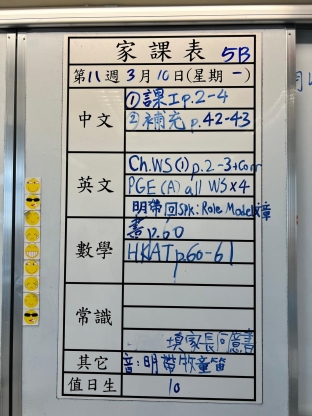 家課表 5B
第11週3月10日(星期一)
中文
①課工p.2-4
②補充p.42-43
英文
Ch.WS(1)p.2-3+Corr
PGE(A) all WS×4
明帶回Spk: Role Model文章
數學
書p.60
HKAT p.60-61
常識
填家長回憶書
其它
音:明帶牧童笛
值日生
10